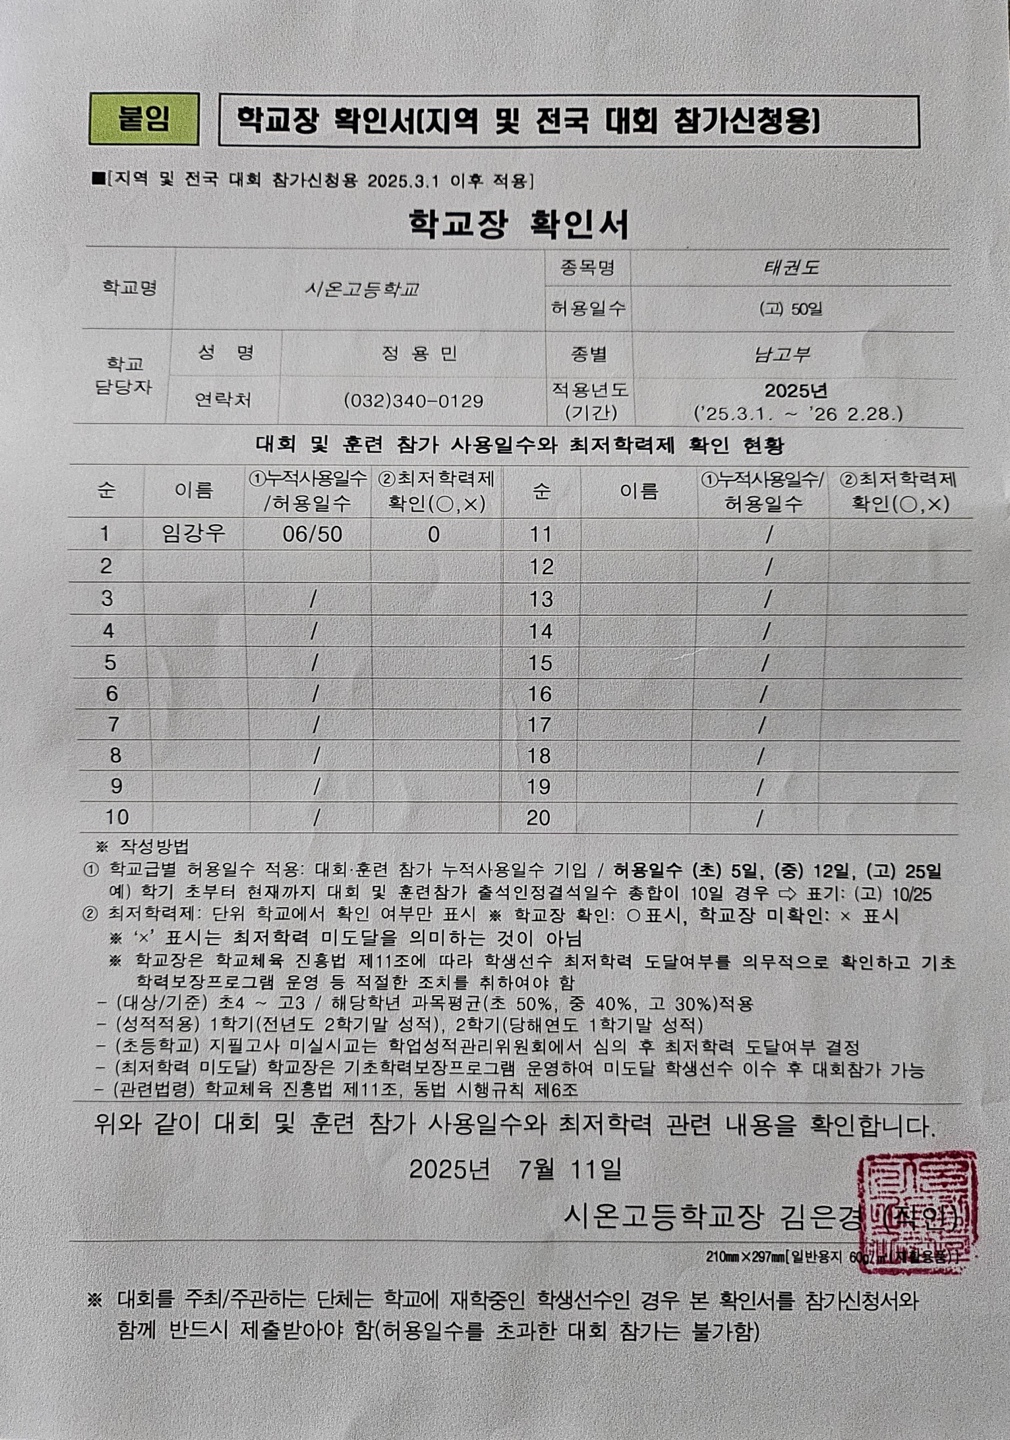 붙임
학교장 확인서(지역 및 전국 대회 참가신청용)
■[지역 및 전국 대회 참가신청용 2025.3.1 이후 적용]
학교장 확인서
학교명 시온고등학교 종목명 태권도
허용일수 (고) 50일
학교 담당자 성 명 정 용 민 종별 남고부
연락처 (032)340-0129 적용년도 (기간) 2025년 ('25.3.1. ~ '26 2.28.)
대회 및 훈련 참가 사용일수와 최저학력제 확인 현황
순 이름 ①누적사용일수/허용일수 ②최저학력제 확인(○,×) 순 이름 ①누적사용일수/허용일수 ②최저학력제 확인(○,×)
1 임강우 06/50 0 11 /
2 12 /
3 / 13 /
4 / 14 /
5 / 15 /
6 / 16 /
7 / 17 /
8 / 18 /
9 / 19 /
10 / 20 /
※ 작성방법
① 학교급별 허용일수 적용: 대회·훈련 참가 누적사용일수 기입 / 허용일수 (초) 5일, (중) 12일, (고) 25일
예) 학기 초부터 현재까지 대회 및 훈련참가 출석인정결석일수 총합이 10일 경우 ⇨ 표기: (고) 10/25
② 최저학력제: 단위 학교에서 확인 여부만 표시 ※ 학교장 확인: ○표시, 학교장 미확인: × 표시
※ '×' 표시는 최저학력 미도달을 의미하는 것이 아님
※ 학교장은 학교체육 진흥법 제11조에 따라 학생선수 최저학력 도달여부를 의무적으로 확인하고 기초
학력보장프로그램 운영 등 적절한 조치를 취하여야 함
- (대상/기준) 초4 ~ 고3 / 해당학년 과목평균(초 50%, 중 40%, 고 30%)적용
- (성적적용) 1학기(전년도 2학기말 성적), 2학기(당해연도 1학기말 성적)
- (초등학교) 지필고사 미실시교는 학업성적관리위원회에서 심의 후 최저학력 도달여부 결정
- (최저학력 미도달) 학교장은 기초학력보장프로그램 운영하여 미도달 학생선수 이수 후 대회참가 가능
- (관련법령) 학교체육 진흥법 제11조, 동법 시행규칙 제6조
위와 같이 대회 및 훈련 참가 사용일수와 최저학력 관련 내용을 확인합니다.
2025년 7월 11일
시온고등학교장 김은경 (직인)
210㎜×297㎜[일반용지 60g/㎡(재활용품)]
※ 대회를 주최/주관하는 단체는 학교에 재학중인 학생선수인 경우 본 확인서를 참가신청서와
함께 반드시 제출받아야 함(허용일수를 초과한 대회 참가는 불가함)